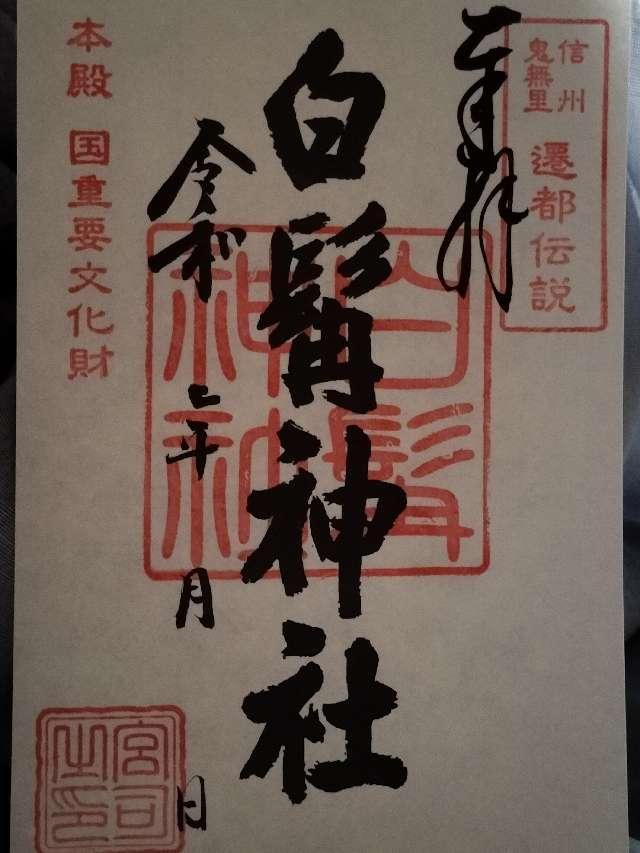 信州
鬼無里
遷都伝説
奉拝
白髯神社
白髯神社
令和 年 月 日
本殿 国重要文化財
宮司之印